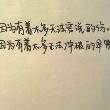 因为有着太多无法言说的伤
因为有着太多无法冲破的牢